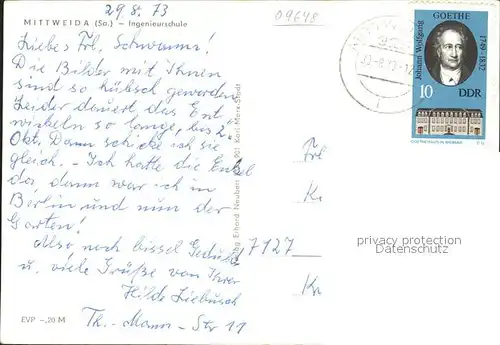 29.8.73
09648
MITTWEIDA (Sa.) – Ingenieurschule
Liebes Frl. Schwamm!
Die Bilder mit Ihnen
sind so hübsch geworden.
Leider dauert das Ent
wickeln so lange, bis 2.
Okt. Dann schicke ich sie
gleich. – Ich hatte die Enkel
da, dann war ich in
Berlin und nun der
Garten!
Also noch bissel Geduld
u. viele Grüße von Ihrer
Hilde Liebusch
Th.-Mann-Str 11
EVP –,20 M
Erhard Neubert KG, 901 Karl-Marx-Stadt
Frl
7127
privacy protection
Datenschutz
GOETHE
Johann Wolfgang
1749-1832
10
DDR
GOETHEHAUS IN WEIMAR